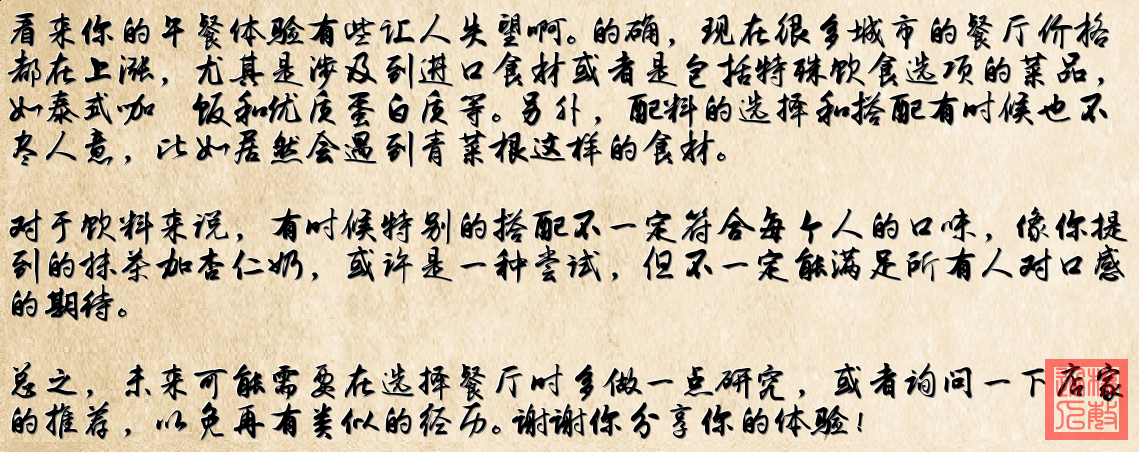 看来你的午餐体验有些让人失望啊。的确，现在很多城市的餐厅价格
都在上涨，尤其是涉及到进口食材或者是包括特殊饮食选项的菜品，
如泰式咖 饭和优质蛋白质等。另外，配料的选择和搭配有时候也不
尽人意，比如居然会遇到青菜根这样的食材。
对于饮料来说，有时候特别的搭配不一定符合每个人的口味，像你提
到的抹茶加杏仁奶，或许是一种尝试，但不一定能满足所有人对口感
的期待。
总之，未来可能需要在选择餐厅时多做一点研究，或者询问一下店家
的推荐，以免再有类似的经历。谢谢你分享你的体验！